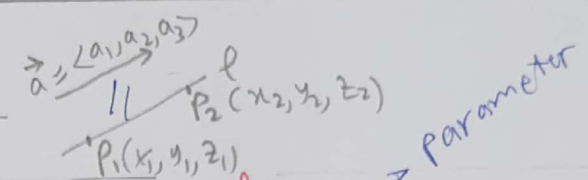 →a = <a₁, a₂, a₃>
|| ℓ
P₂ (x₂, y₂, z₂)
P₁ (x₁, y₁, z₁)
parameter